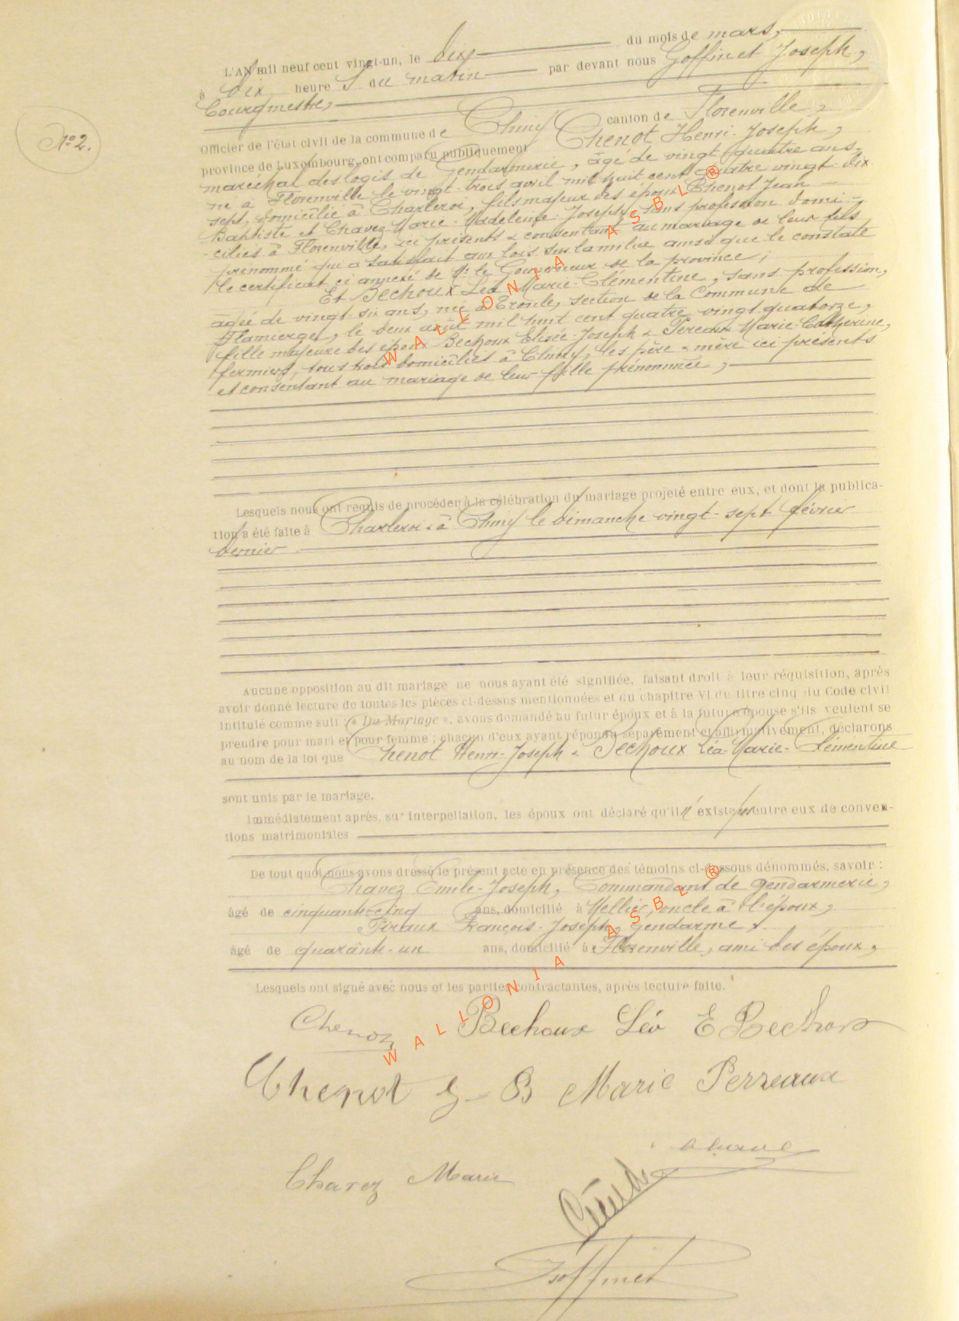 L'AN mil neuf cent vingt-un, le dix du mois de mars,
à dix heures du matin par devant nous Goffinet Joseph,
Bourgmestre,
Officier de l'état civil de la commune de Chiny canton de Florenville,
province de Luxembourg, ont comparu publiquement Chenot Henri-Joseph,
maréchal des logis de Gendarmerie, âgé de vingt quatre ans,
né à Florenville le vingt-trois avril mil huit cent quatre vingt-dix
sept, domicilié à Charleroi, fils majeur des époux Chenot Jean
Baptiste et Chavez Marie-Madeleine-Joseph, sans profession domi-
-ciliés à Florenville, ici présents & consentant au mariage de leur fils
prénommé qui a satisfait aux lois sur la milice ainsi que le constate
le certificat ci annexé de Mr le Gouverneur de la province;
Et Bechoux Léa-Marie-Clémentine, sans profession,
âgée de vingt six ans, née à section de la Commune de
Flamierge, le deux août mil huit cent quatre vingt quatorze,
fille majeure des époux Bechoux Elisée-Joseph & Pereaux Marie-Catherine,
fermiers, tous trois domiciliés à Chiny, les père & mère ici présents
et consentant au mariage de leur fille prénommée,
Nº 2.
Lesquels nous ont requis de procéder à la célébration du mariage projeté entre eux, et dont la publica-
tion a été faite à Charleroi & à Chiny le dimanche vingt-sept février
dernier
Aucune opposition au dit mariage ne nous ayant été signifiée, faisant droit à leur réquisition, après
avoir donné lecture de toutes les pièces ci-dessus mentionnées et du chapitre VI du titre cinq du Code civil
intitulé comme suit « Du Mariage », avons demandé au futur époux et à la future épouse s'ils veulent se
prendre pour mari et pour femme; chacun d'eux ayant répondu séparément et affirmativement, déclarons
au nom de la loi que Chenot Henri-Joseph & Bechoux Léa-Marie-Clémentine
sont unis par le mariage.
Immédiatement après, sur interpellation, les époux ont déclaré qu'il n'existe pas entre eux de conven-
tions matrimoniales
De tout quoi nous avons dressé le présent acte en présence des témoins ci-dessous dénommés, savoir :
Chavez Emile-Joseph, Commandant de gendarmerie,
âgé de cinquante cinq ans, domicilié à Mellier, oncle à l'époux,
Piraux François-Joseph, gendarme,
âgé de quarante-un ans, domicilié à Florenville, ami des époux,
Lesquels ont signé avec nous et les parties contractantes, après lecture faite.
Chenot Bechoux Léa E Bechoux
Chenot J-B Marie Perreaux
Chavez Marie
Goffinet
WALLONIA ASBL ®
WALLONIA ASBL ®